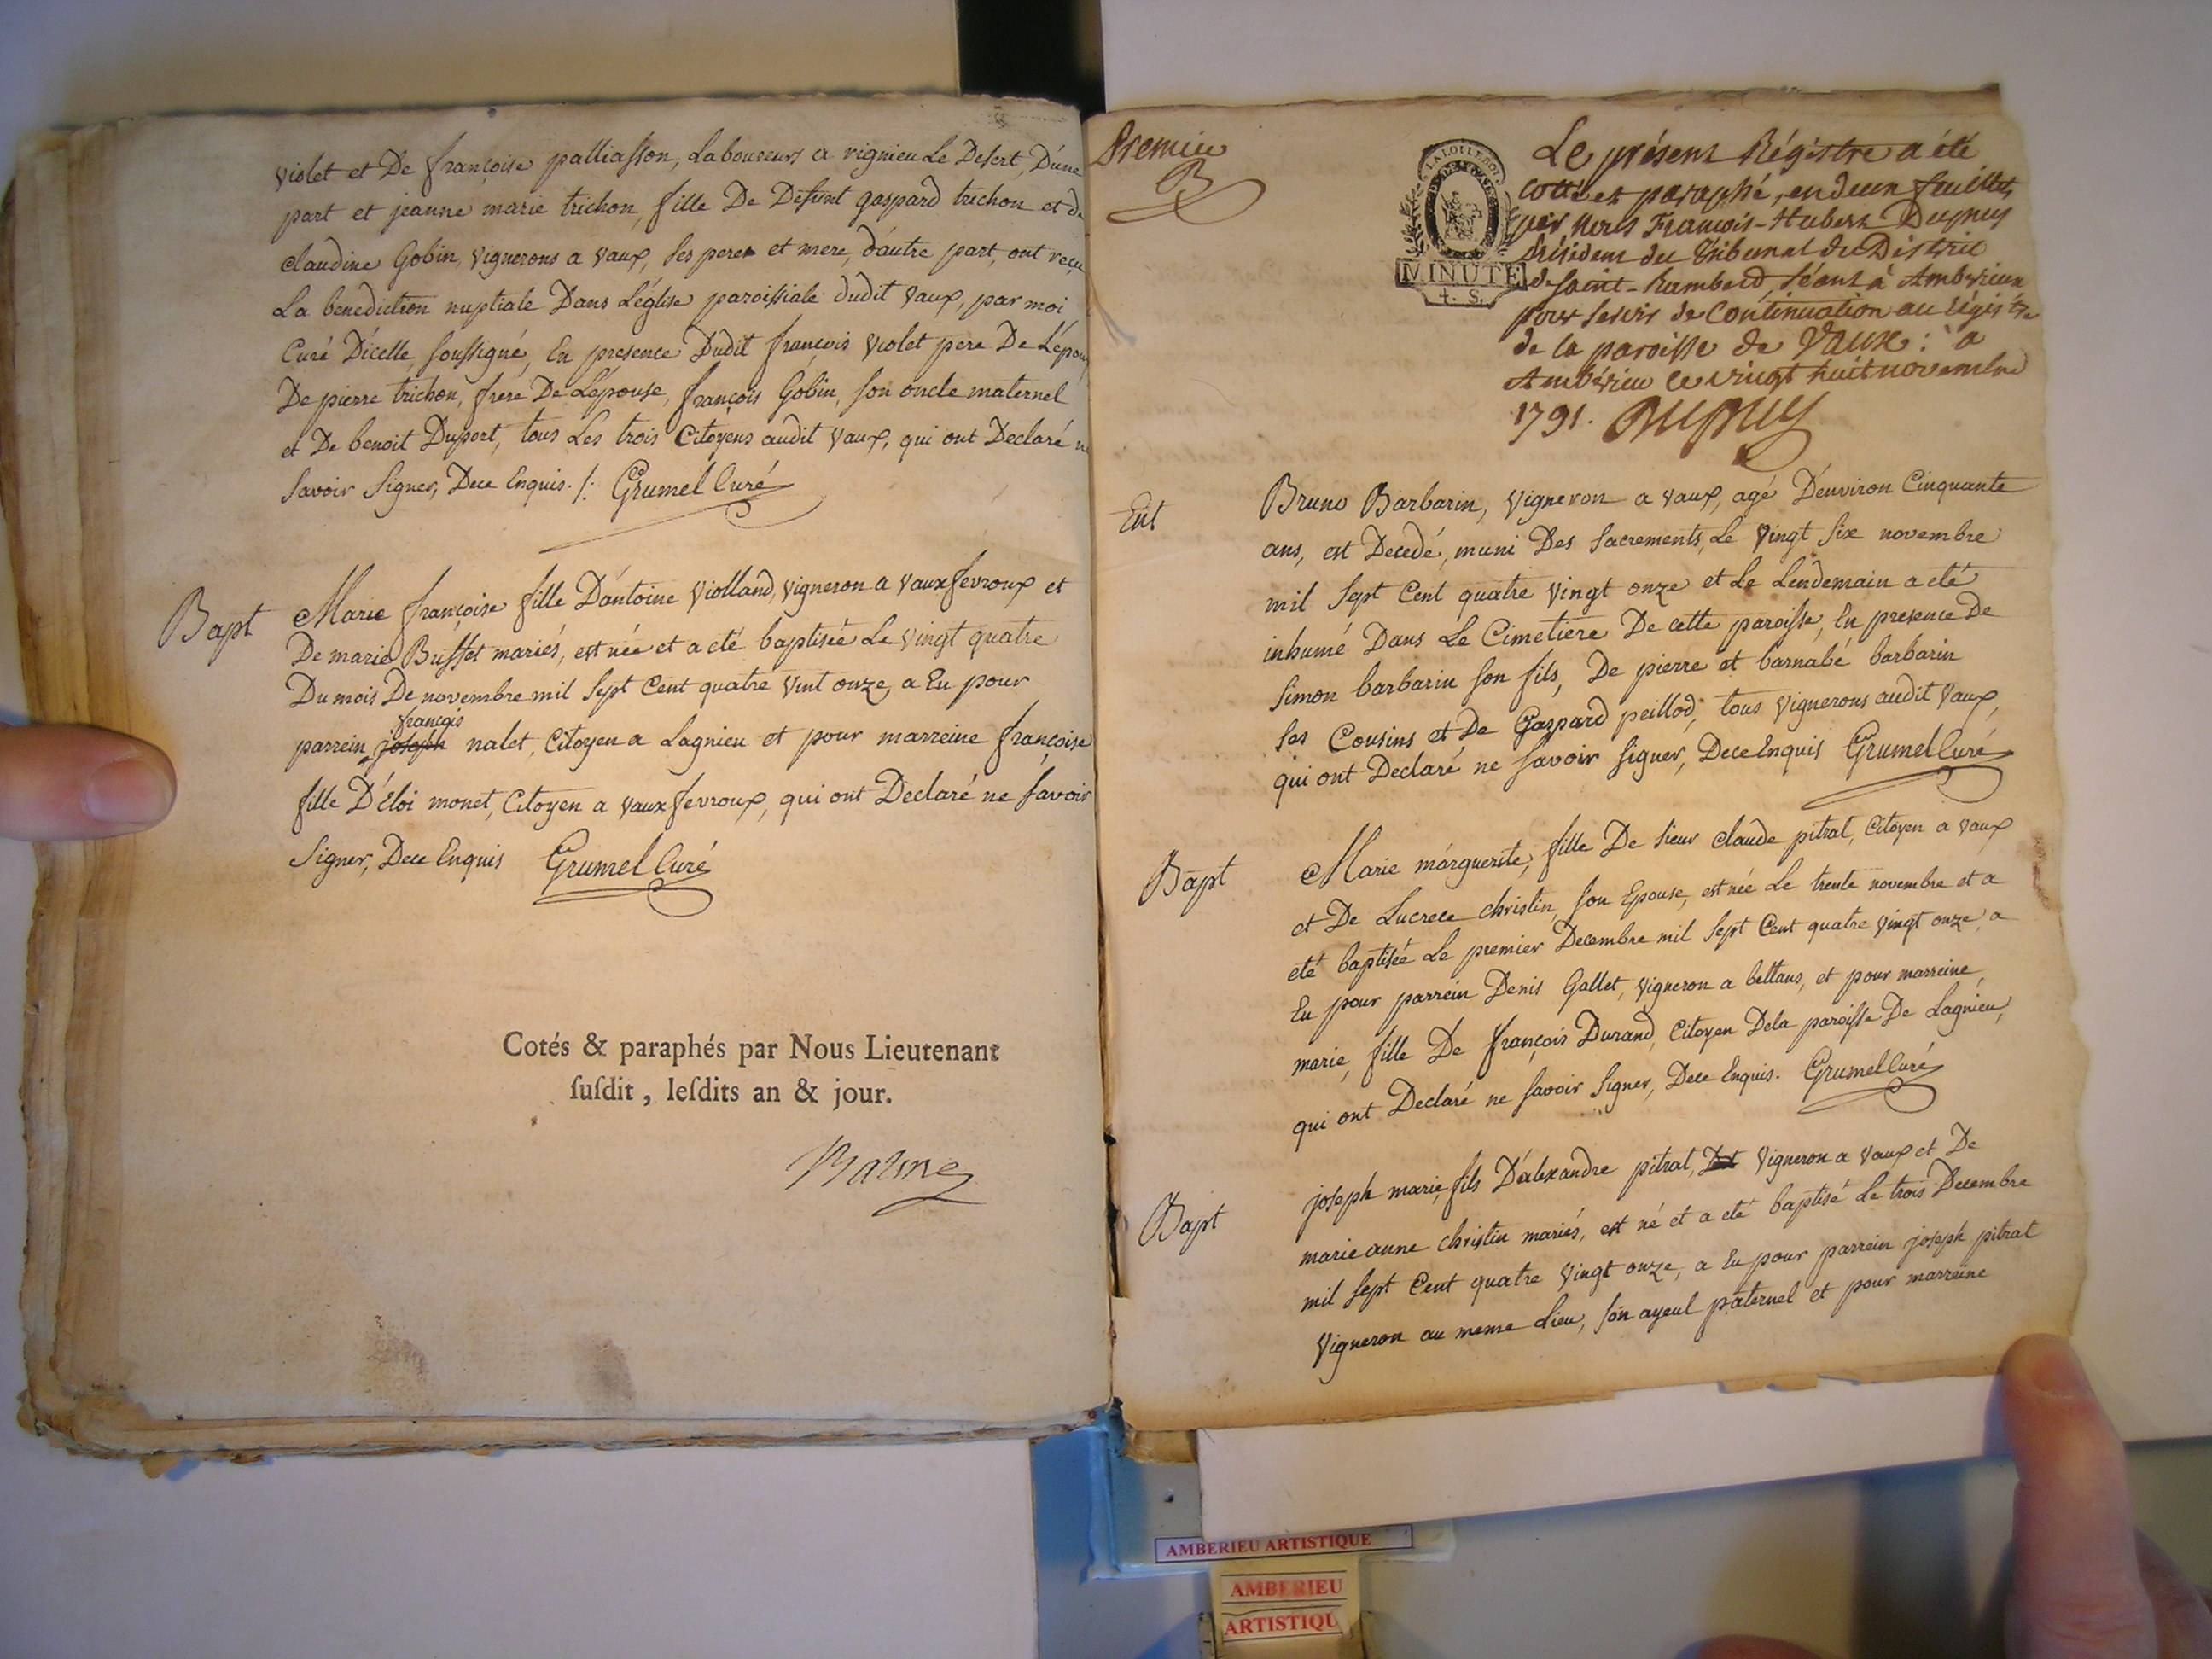 violet et De françoise palliasson, Laboureurs a vignieu Le Desert, D'une
part et jeanne marie trichon, fille De Defunt gaspard trichon et de
claudine Gobin, vignerons a vaux, ses pere et mere, d'autre part, ont reçu
La benediction nuptiale Dans L'église paroissiale dudit vaux, par moi
Curé D'icelle soussigné, En presence Dudit françois violet pere De L'époux
De pierre trichon, frere De L'épouse, françois Gobin, son oncle maternel
et De benoit Duport, tous Les trois Citoyens audit vaux, qui ont Declaré ne
savoir signer, Dece Enquis. /: Grumel Curé
Bapt
Marie françoise fille D'antoine Violland, vigneron a vaux fevroux et
De marie Brisset mariés, est née et a eté baptisée Le vingt quatre
Du mois De novembre mil sept Cent quatre vint onze, a Eu pour
françois
parrein joseph nalet, Citoyen a Lagnieu et pour marreine françoise
fille D'éloi monet, Citoyen a vaux fevroux, qui ont Declaré ne savoir
signer, Dece Enquis Grumel Curé
Cotés & paraphés par Nous Lieutenant
ſuſdit, leſdits an & jour.
Premier
LA LOI LE ROI
MINUTE
4. S.
Le présent Régistre a été
cotté et paraphé, en deux feuillets
par Nous François-Hubert Dupuy
Président du Tribunal du District
de Saint-Rambert, séant à Ambérieux
pour servir de Continuation au régistre
de la paroisse de Vaux : à
Ambérieu ce vingt huit novembre
1791. Dupuy
Ent
Bruno Barbarin, vigneron a vaux, agé D'environ Cinquante
ans, est Decedé, muni Des sacrements, Le vingt six novembre
mil sept Cent quatre vingt onze et Le Lendemain a eté
inhumé Dans Le Cimetiere De cette paroisse, En presence De
simon barbarin son fils, De pierre et barnabé barbarin
ses Cousins et De Gaspard peillod, tous vignerons audit vaux,
qui ont Declaré ne savoir signer, Dece Enquis Grumel Curé
Bapt
Marie marguerite, fille De sieur claude pitrat, Citoyen a vaux
et De Lucrece christin, son Epouse, est née Le trente novembre et a
eté baptisée Le premier Decembre mil sept Cent quatre vingt onze, a
Eu pour parrein Denis Gallet, vigneron a bettans, et pour marreine,
marie, fille De françois Durand, Citoyen Dela paroisse De Lagnieu,
qui ont Declaré ne savoir signer, Dece Enquis. Grumel Curé
Bapt
joseph marie, fils D'alexandre pitrat, vigneron a vaux et De
marie anne christin mariés, est né et a eté baptisé Le trois Decembre
mil sept Cent quatre vingt onze, a Eu pour parrein joseph pitrat
vigneron au meme Lieu, son ayeul paternel et pour marreine
AMBERIEU ARTISTIQUE
AMBERIEU
ARTISTIQU